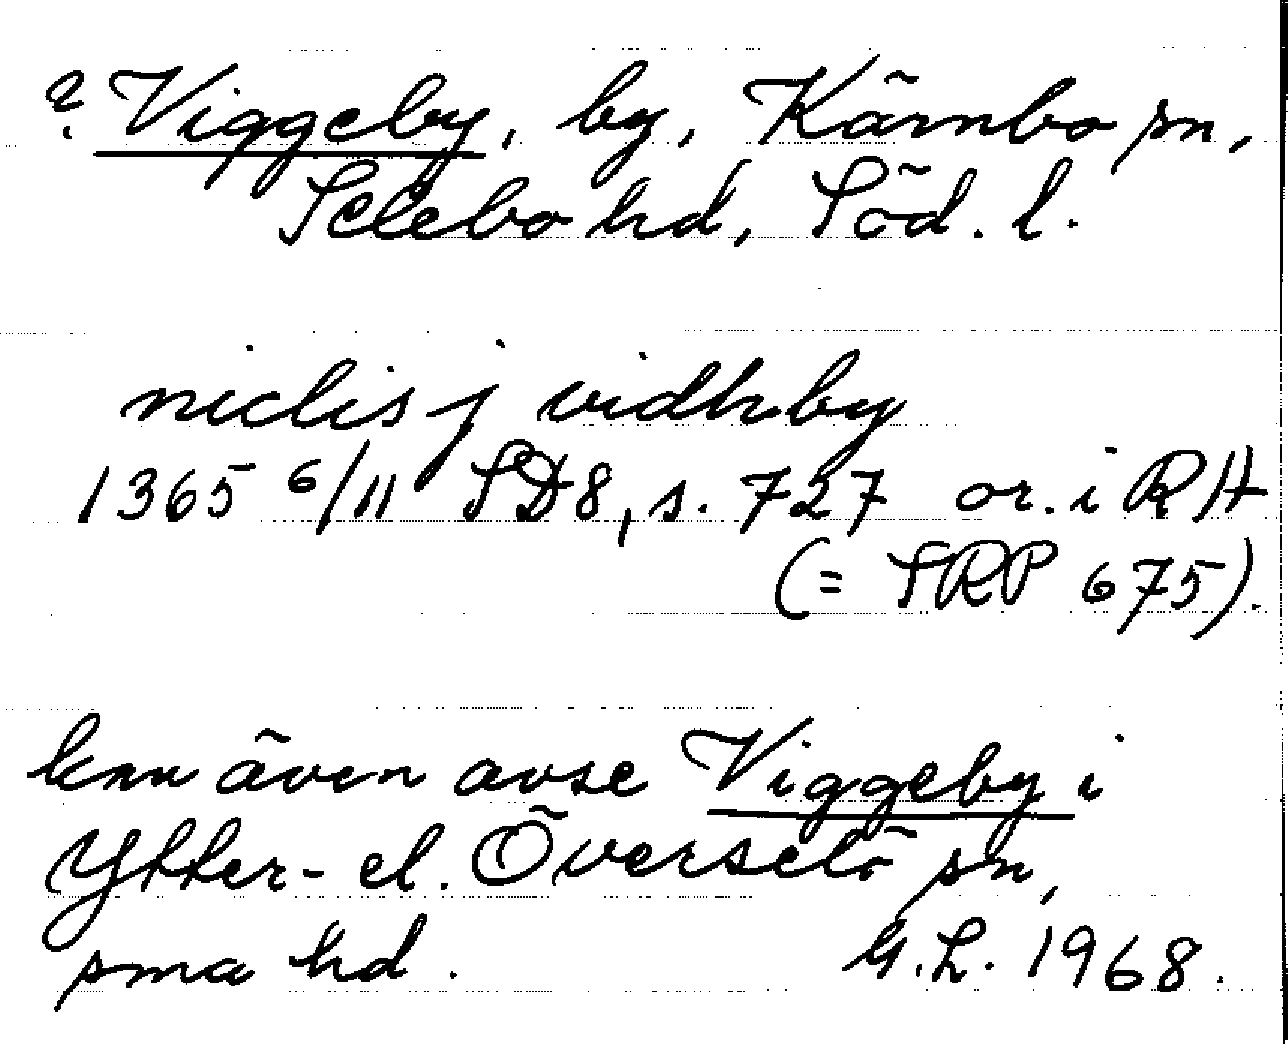 ? Viggeby, by, Kärnbo sn,
Selebo hd, Söd. l.
niclis j vidhby
1365 6/11 SD8, s. 727 or. i RA
(= SRP 675).
kan även avse Viggeby i
Ytter- el. Överselö sn,
sma hd.
G.L. 1968.